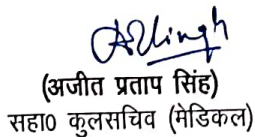 (अजीत प्रताप सिंह)
सहा0 कुलसचिव (मेडिकल)